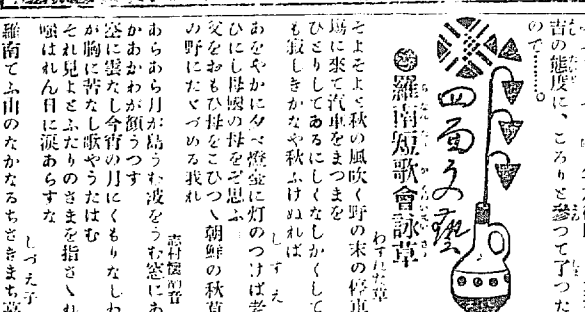 吉の態度に、ころりと參つて了つた
ので……。
四面文藝
羅南短歌會詠草
わすれな草
そよそよと秋の風吹く野の末の停車
場に來て汽車をまつまを
ひとりしてあるにしくなしかくして
も寂しきかなや秋ふけぬれば
しずえ
あをやかに夕べ燈臺に灯のつけば老
ひにし母國の母をぞ思ふ
父をおもひ母をこひつゝ朝鮮の秋草
の野にたゝづめる我れ
志村
あらあら月が島うむ波をうむ窓にあ
かあかわが顏うつす
空に雲なし今宵の月にくもりなしわ
が胸に苦なし歌やうたはむ
それ見よとふたりのさまを指さゝれ
嗤はれん日に淚あらすな
しづえ子
羅南てふ山のなかなるちさきまち